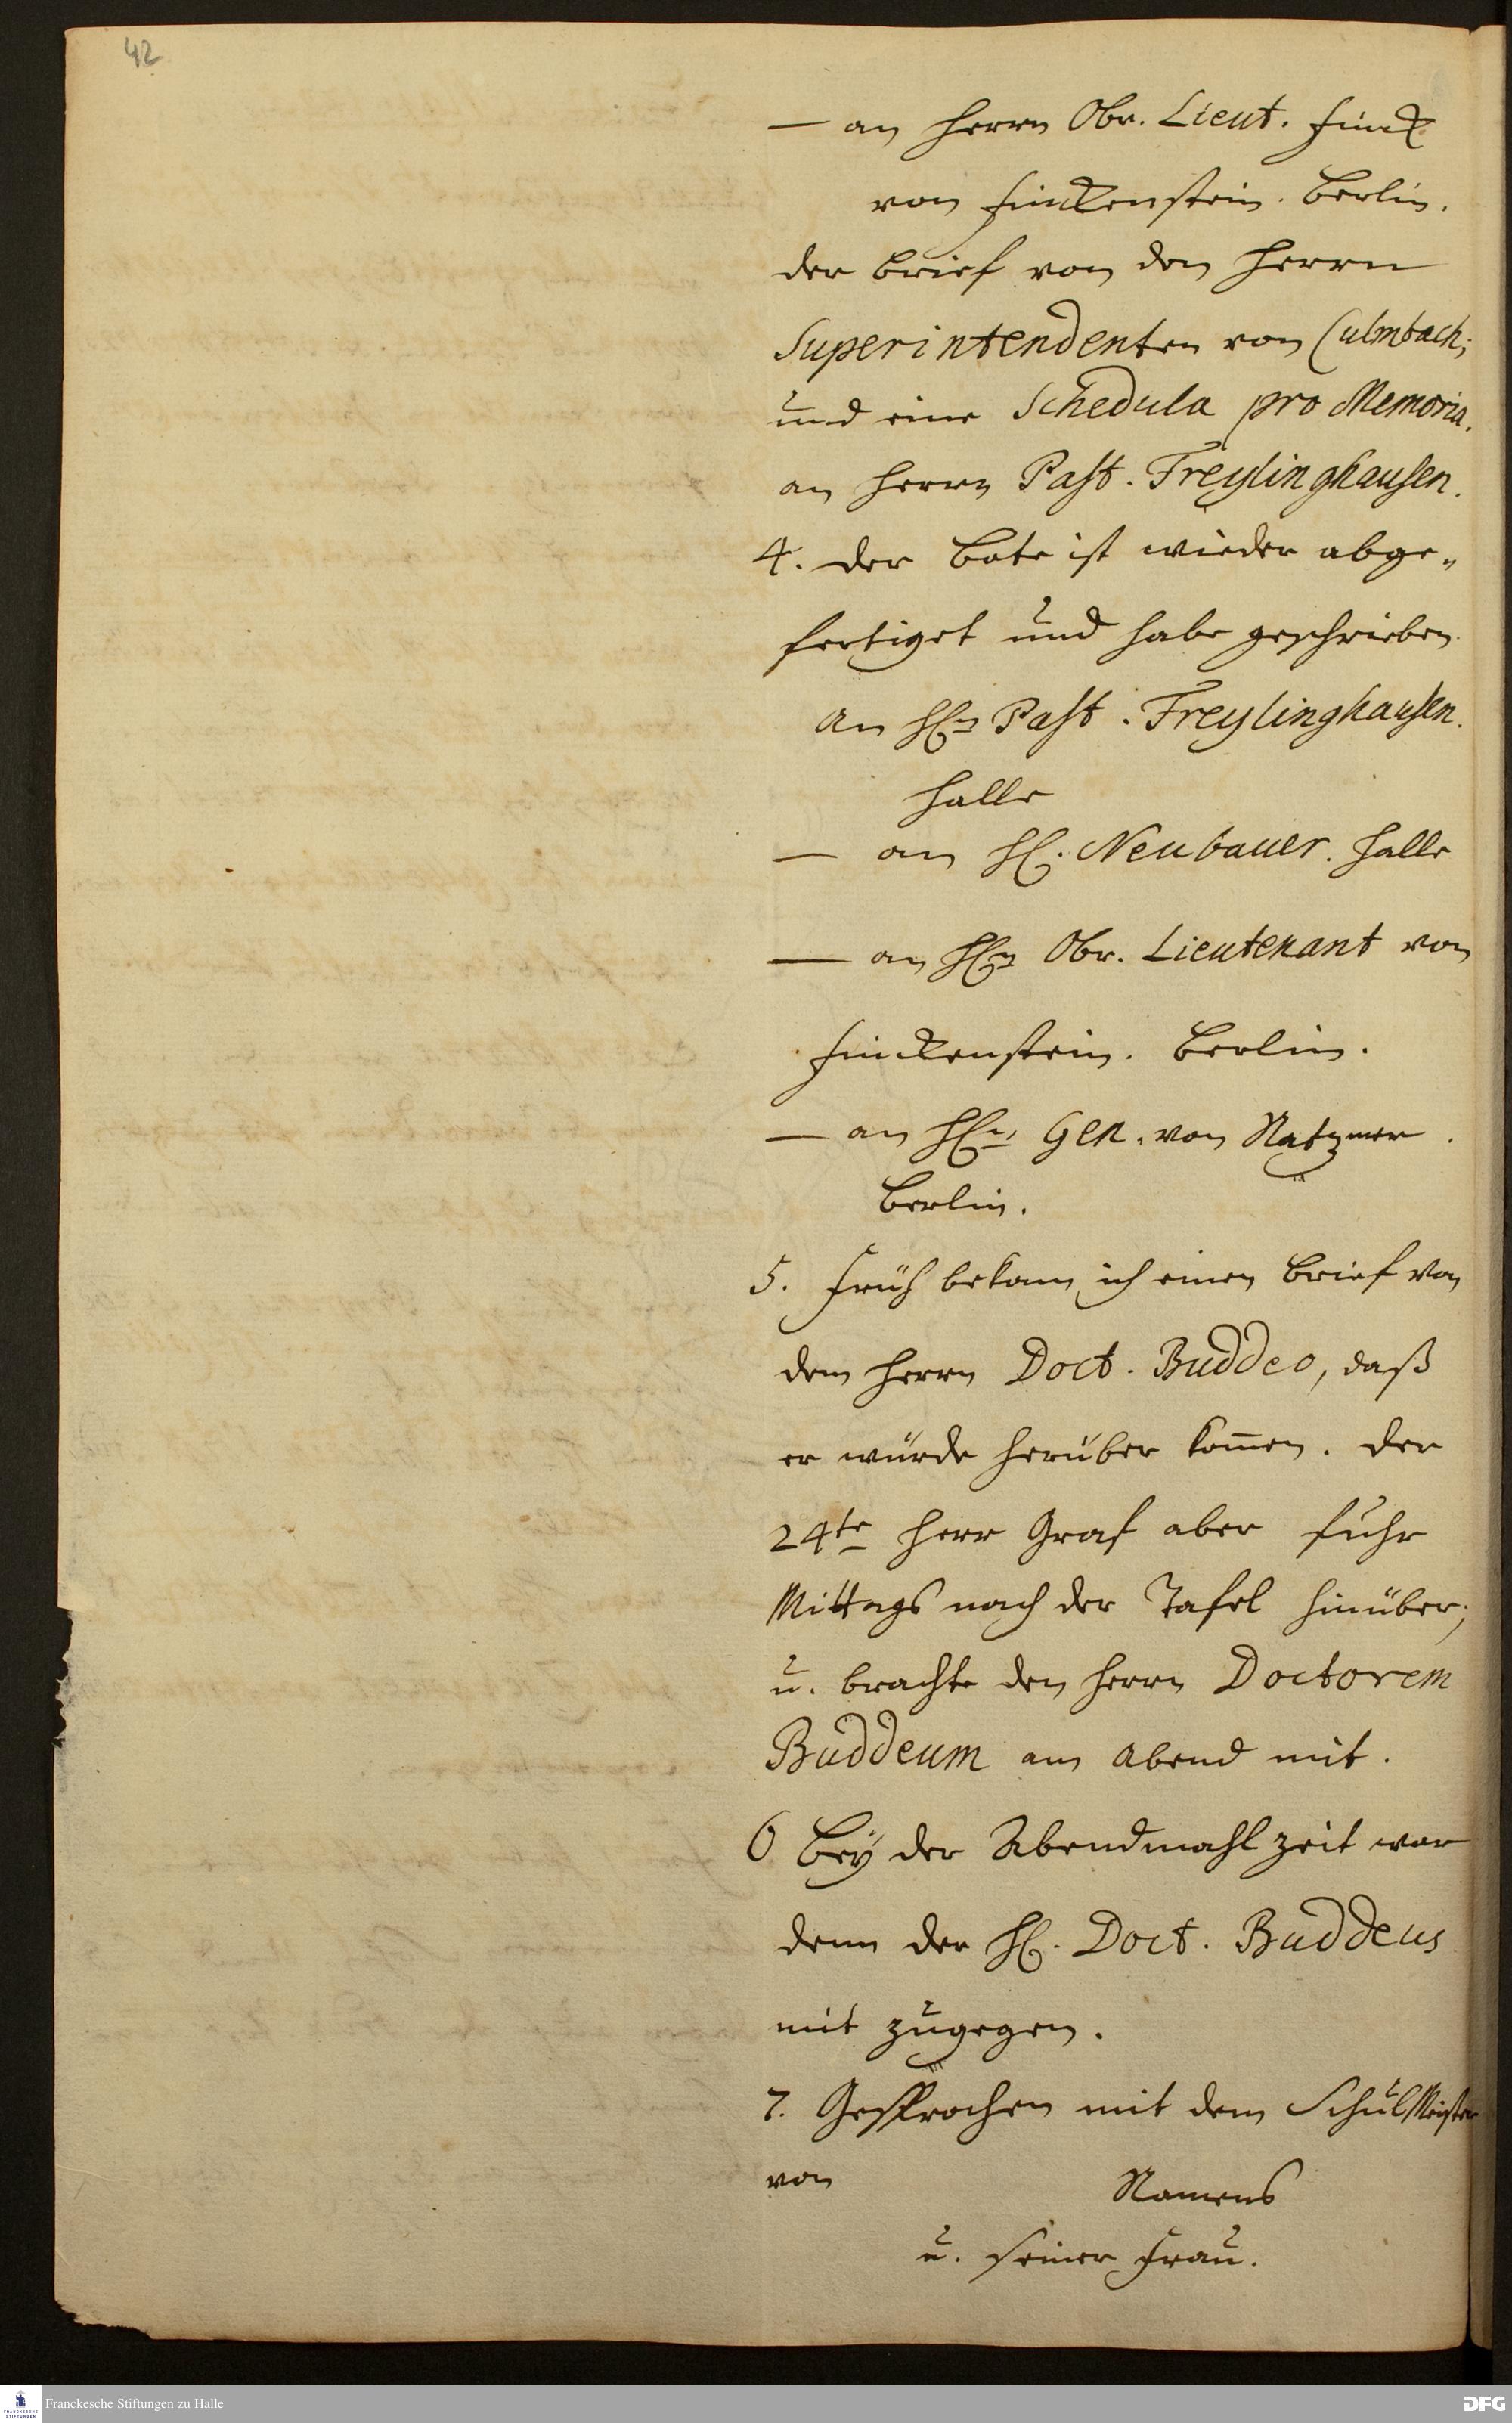 42
— an Herrn Obr. Lieut. Finck
von Finckenstein. Berlin.
der Brief von den Herrn
Superintendenten von Culmbach;
und eine Schedula pro Memoria.
an Herrn Past. Freylinghausen.
4. Der Bote ist wieder abge„
fertiget und habe geschrieben
an HEn Past. Freylinghausen.
Halle
— an HE. Neubauer. Halle
— an HEn Obr. Lieutenant von
Finckenstein. Berlin.
— an HEn Gen. von Natzmer.
Berlin.
5. Früh bekam ich einen Brief von
dem Herrn Doct. Buddeo, daß
er würde herüber kom̅en. Der
24te Herr Graf aber fuhr
Mittags nach der Tafel hinüber;
u. brachte den Herrn Doctorem
Buddeum am Abend mit.
6 Bey der Abendmahlzeit war
denn der HE. Doct. Buddeus
mit zugegen.
7. Gesprochen mit dem SchulMeister
von Namens
u. seiner Frau.
Franckesche Stiftungen zu Halle
DFG